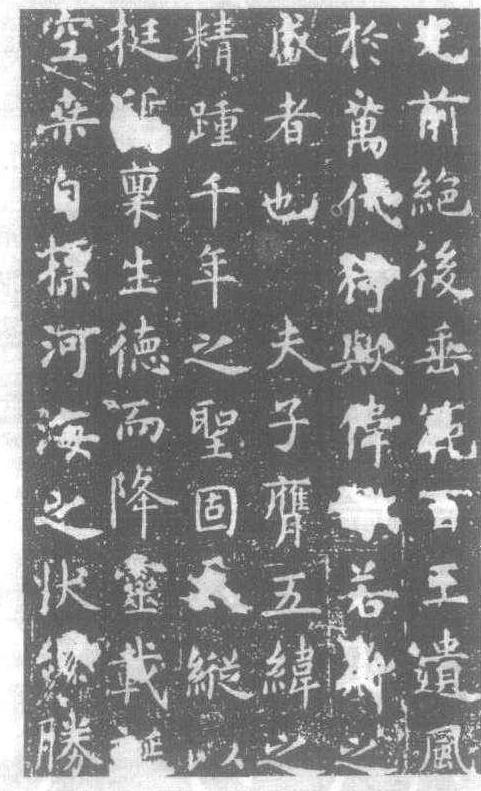 光前絕後垂範百王遺風
於萬代猗歟偉若斯之
盛者也 夫子膺五緯之
精踵千年之聖固天縱以
挺質稟生德而降靈載誕
空桑自標河海之狀纔勝